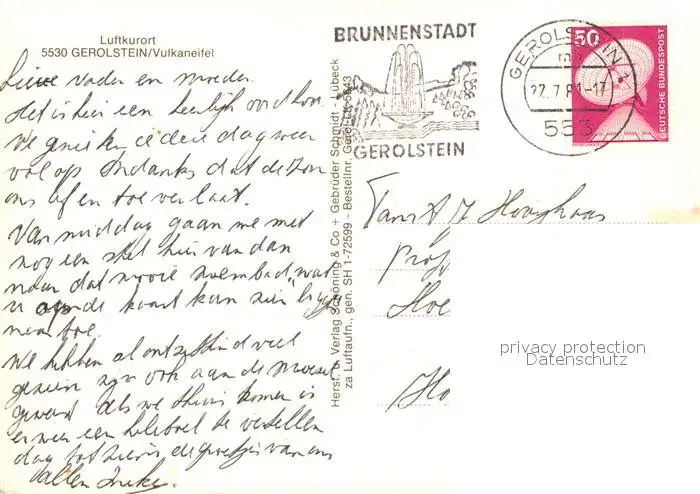 Luftkurort
5530 GEROLSTEIN/Vulkaneifel
Lieve vader en moeder.
Het is hier een heerlijk
We genieten iedere dag weer
volop ondanks dat de zon
ons af en toe verlaat.
Van middag gaan we met
nog een stel hier vandan
naar dat mooie zwembad wat
u op de kaart kan zien
naar toe.
We hebben al ontzettend veel
gezien zijn ook aan de Moezel
geweest als we thuis komen is
er weer een heleboel te vertellen
dag tot hier is de groetjes van ons
allen Ineke.
Herst. u. Verlag Schöning & Co + Gebrüder Schmidt - Lübeck
za Luftaufn., gen. SH 1-72599 - Bestellnr. Gerol
BRUNNENSTADT
GEROLSTEIN
GEROLSTEIN 1
22.7.81-17
553
50
DEUTSCHE BUNDESPOST
Hooghaas
Prof
Hoe
Ho
privacy protection
Datenschutz